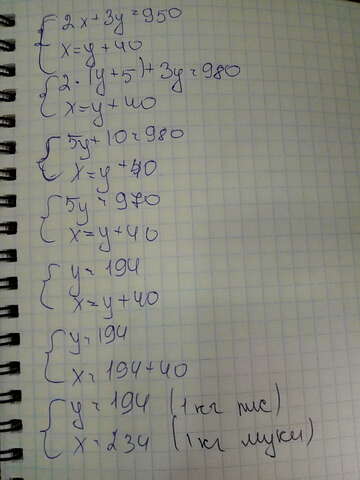 2x+3y=950
x=y+40
2·(y+5)+3y=980
x=y+40
5y+10=980
x=y+40
5y=970
x=y+40
y=194
x=y+40
y=194
x=194+40
y=194 (1кг рис)
x=234 (1кг муки)